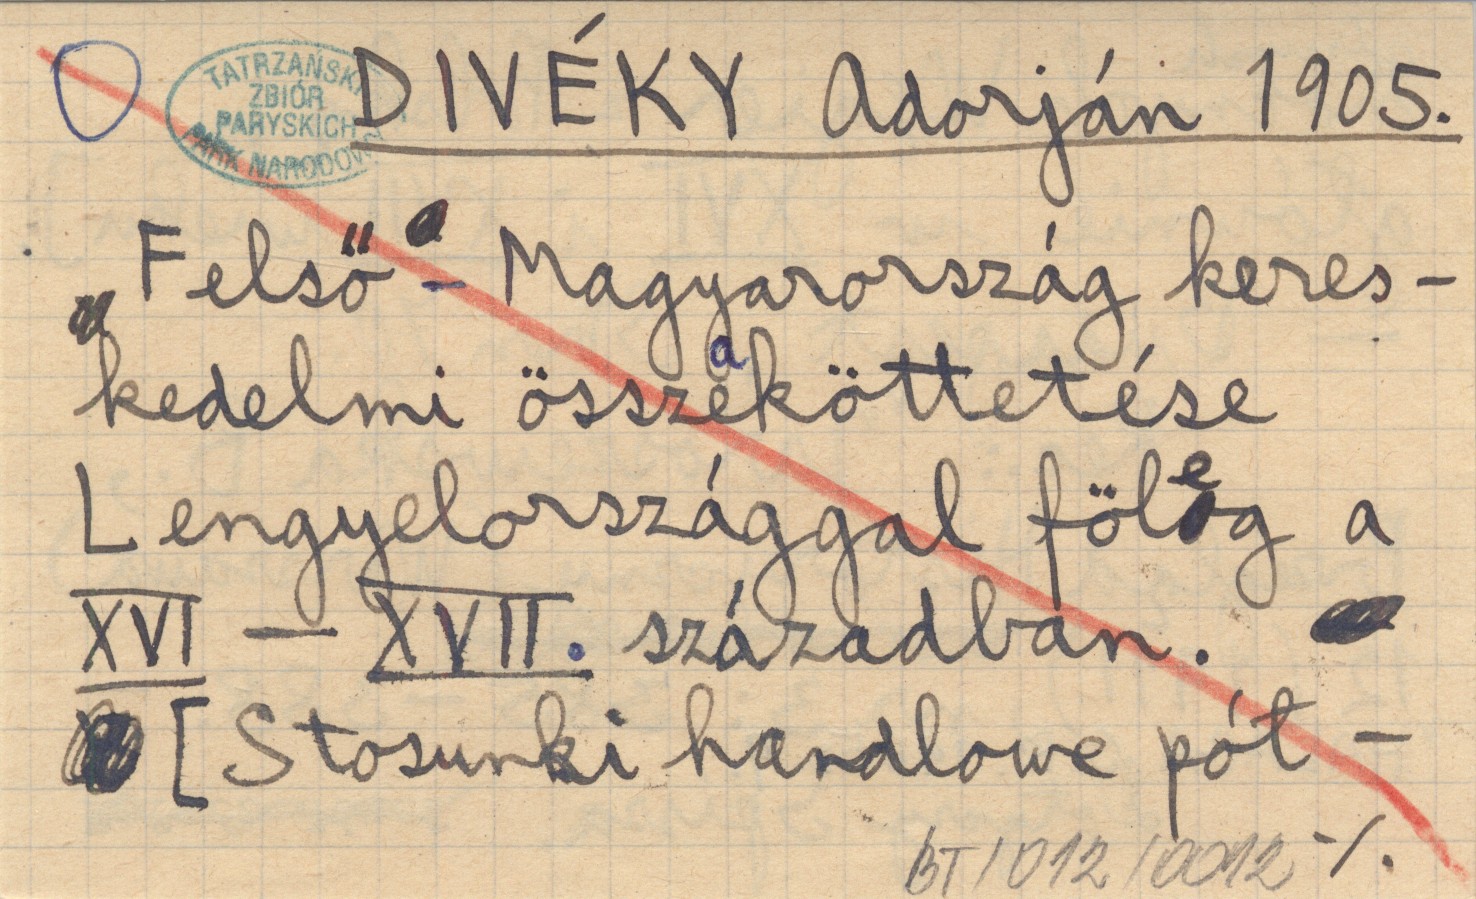 TATRZAŃSKI
ZBIÓR
PARYSKICH
PARK NARODOWY
DIVÉKY Adorján 1905.
Felső-Magyarország keres-
kedelmi összaköttetése
Lengyelországgal föleg a
XVI — XVII. században.
[Stosunki handlowe pót-
BT/012/0012 -/.